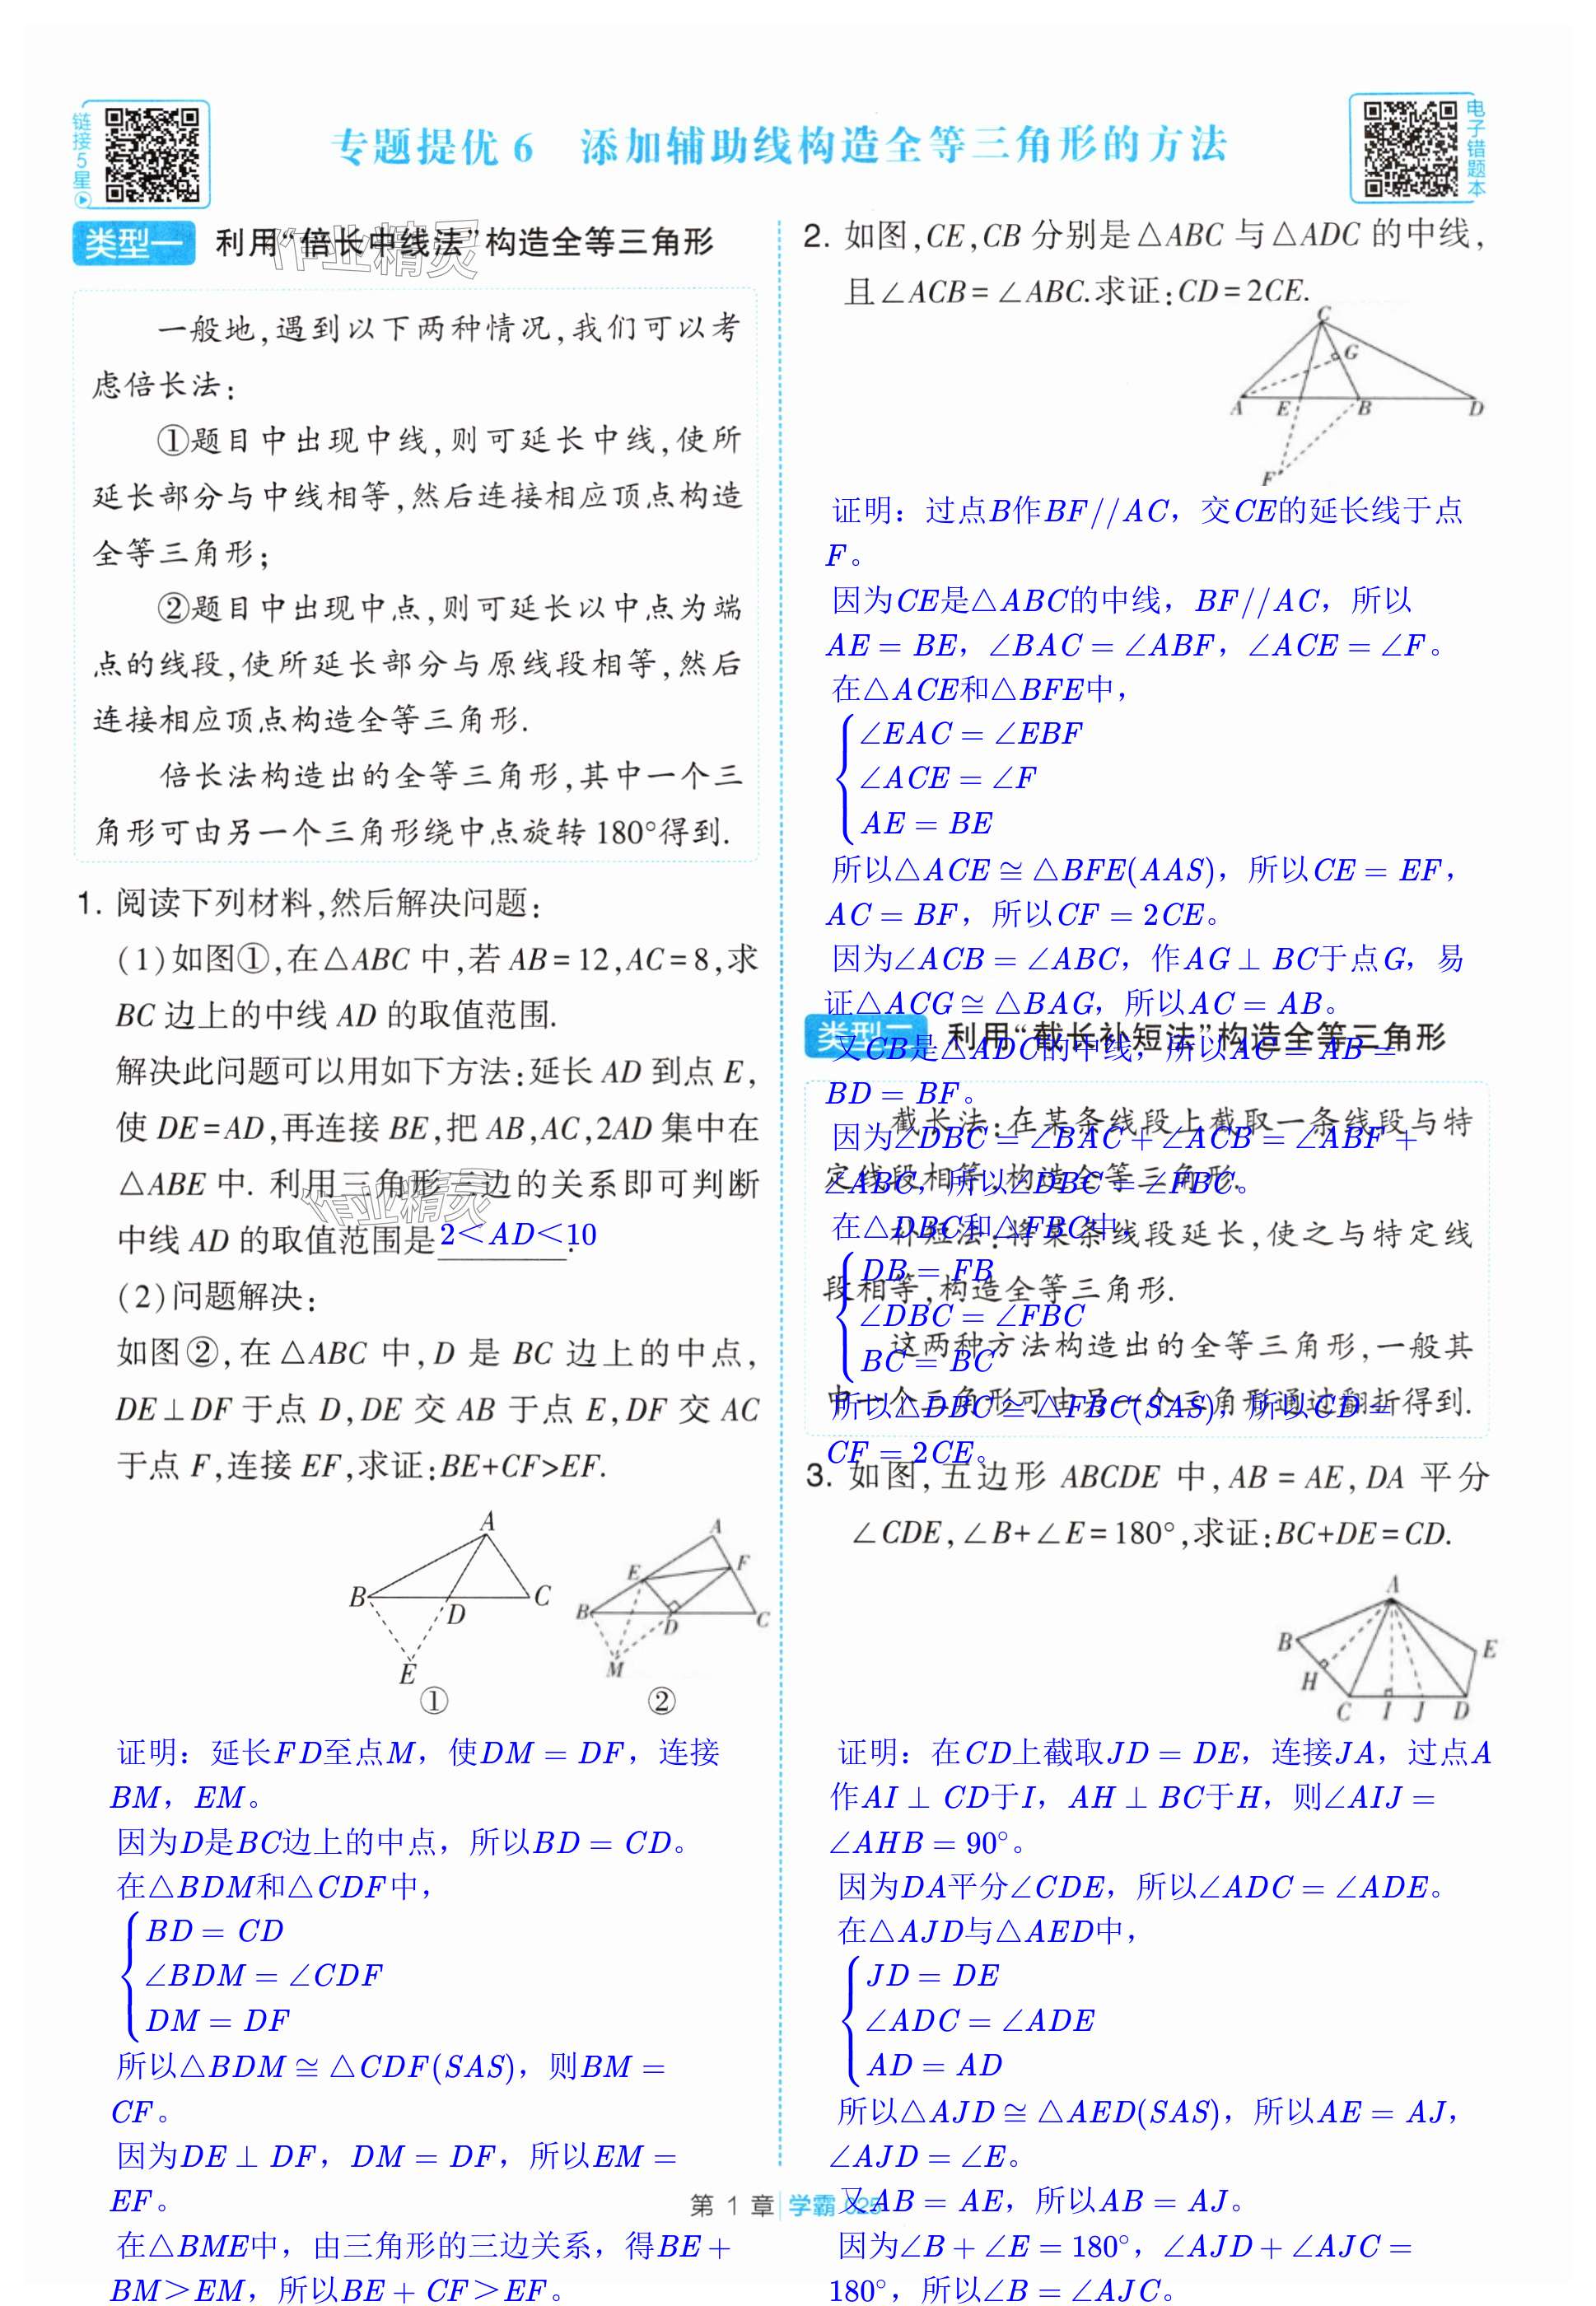 链接5星
专题提优6 添加辅助线构造全等三角形的方法
电子错题本
类型一 利用“倍长中线法”构造全等三角形
作业精灵
一般地,遇到以下两种情况,我们可以考
虑倍长法:
①题目中出现中线,则可延长中线,使所
延长部分与中线相等,然后连接相应顶点构造
全等三角形;
②题目中出现中点,则可延长以中点为端
点的线段,使所延长部分与原线段相等,然后
连接相应顶点构造全等三角形.
倍长法构造出的全等三角形,其中一个三
角形可由另一个三角形绕中点旋转180°得到.
1. 阅读下列材料,然后解决问题:
(1)如图①,在△ABC中,若AB=12,AC=8,求
BC边上的中线AD的取值范围.
解决此问题可以用如下方法:延长AD到点E,
使DE=AD,再连接BE,把AB,AC,2AD集中在
△ABE中. 利用三角形三边的关系即可判断
作业精灵
中线AD的取值范围是2<AD<10.
(2)问题解决:
如图②,在△ABC中,D是BC边上的中点,
DE⊥DF于点D,DE交AB于点E,DF交AC
于点F,连接EF,求证:BE+CF>EF.
A
B
D
C
E
①
A
E
F
B
D
C
M
②
证明：延长FD至点M，使DM = DF，连接
BM，EM。
因为D是BC边上的中点，所以BD = CD。
在△BDM和△CDF中，
BD = CD
∠BDM = ∠CDF
DM = DF
所以△BDM ≅ △CDF(SAS)，则BM =
CF。
因为DE ⊥ DF，DM = DF，所以EM =
EF。
在△BME中，由三角形的三边关系，得BE +
BM>EM，所以BE + CF>EF。
2. 如图,CE,CB分别是△ABC与△ADC的中线,
且∠ACB=∠ABC.求证:CD=2CE.
C
G
A
E
B
D
F
证明：过点B作BF//AC，交CE的延长线于点
F。
因为CE是△ABC的中线，BF//AC，所以
AE = BE，∠BAC = ∠ABF，∠ACE = ∠F。
在△ACE和△BFE中，
∠EAC = ∠EBF
∠ACE = ∠F
AE = BE
所以△ACE ≅ △BFE(AAS)，所以CE = EF，
AC = BF，所以CF = 2CE。
因为∠ACB = ∠ABC，作AG ⊥ BC于点G，易
证△ACG ≅ △BAG，所以AC = AB。
类型二 利用“截长补短法”构造全等三角形
又CB是△ADC的中线，所以AC = AB =
BD = BF。
截长法:在某条线段上截取一条线段与特
因为∠DBC = ∠BAC + ∠ACB = ∠ABF +
定线段相等,构造全等三角形.
∠ABC，所以∠DBC = ∠FBC。
在△DBC和△FBC中，
补短法:将某条线段延长,使之与特定线
DB = FB
段相等,构造全等三角形.
∠DBC = ∠FBC
这两种方法构造出的全等三角形,一般其
BC = BC
中一个三角形可由另一个三角形通过翻折得到.
所以△DBC ≅ △FBC(SAS)，所以CD =
CF = 2CE。
3. 如图,五边形ABCDE中,AB=AE,DA平分
∠CDE,∠B+∠E=180°,求证:BC+DE=CD.
A
B
E
H
C
I
J
D
证明：在CD上截取JD = DE，连接JA，过点A
作AI ⊥ CD于I，AH ⊥ BC于H，则∠AIJ =
∠AHB = 90°。
因为DA平分∠CDE，所以∠ADC = ∠ADE。
在△AJD与△AED中，
JD = DE
∠ADC = ∠ADE
AD = AD
所以△AJD ≅ △AED(SAS)，所以AE = AJ，
∠AJD = ∠E。
又AB = AE，所以AB = AJ。
因为∠B + ∠E = 180°，∠AJD + ∠AJC =
180°，所以∠B = ∠AJC。
第1章 学霸 025